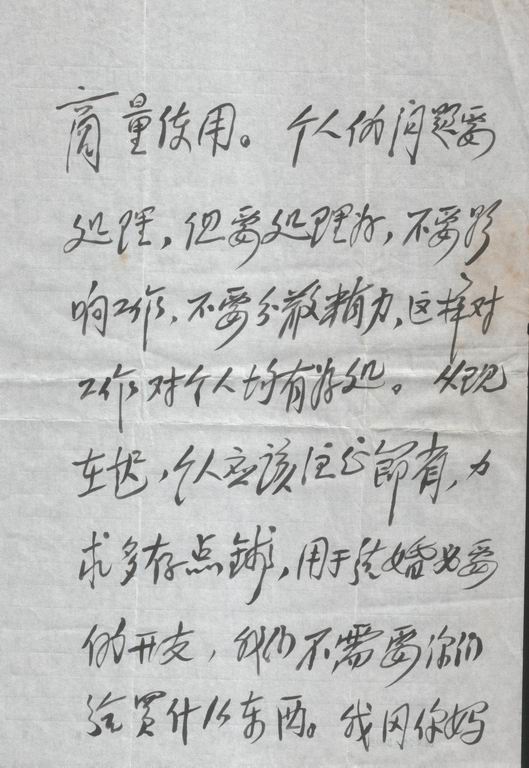 商量使用。个人的问题要
处理，但要处理好，不要影
响工作，不要分散精力，这样对
工作对个人均有好处。从现
在起，个人应该注意节省，力
求多存点钱，用于结婚必要
的开支，我们不需要你们
给买什么东西。我同你妈